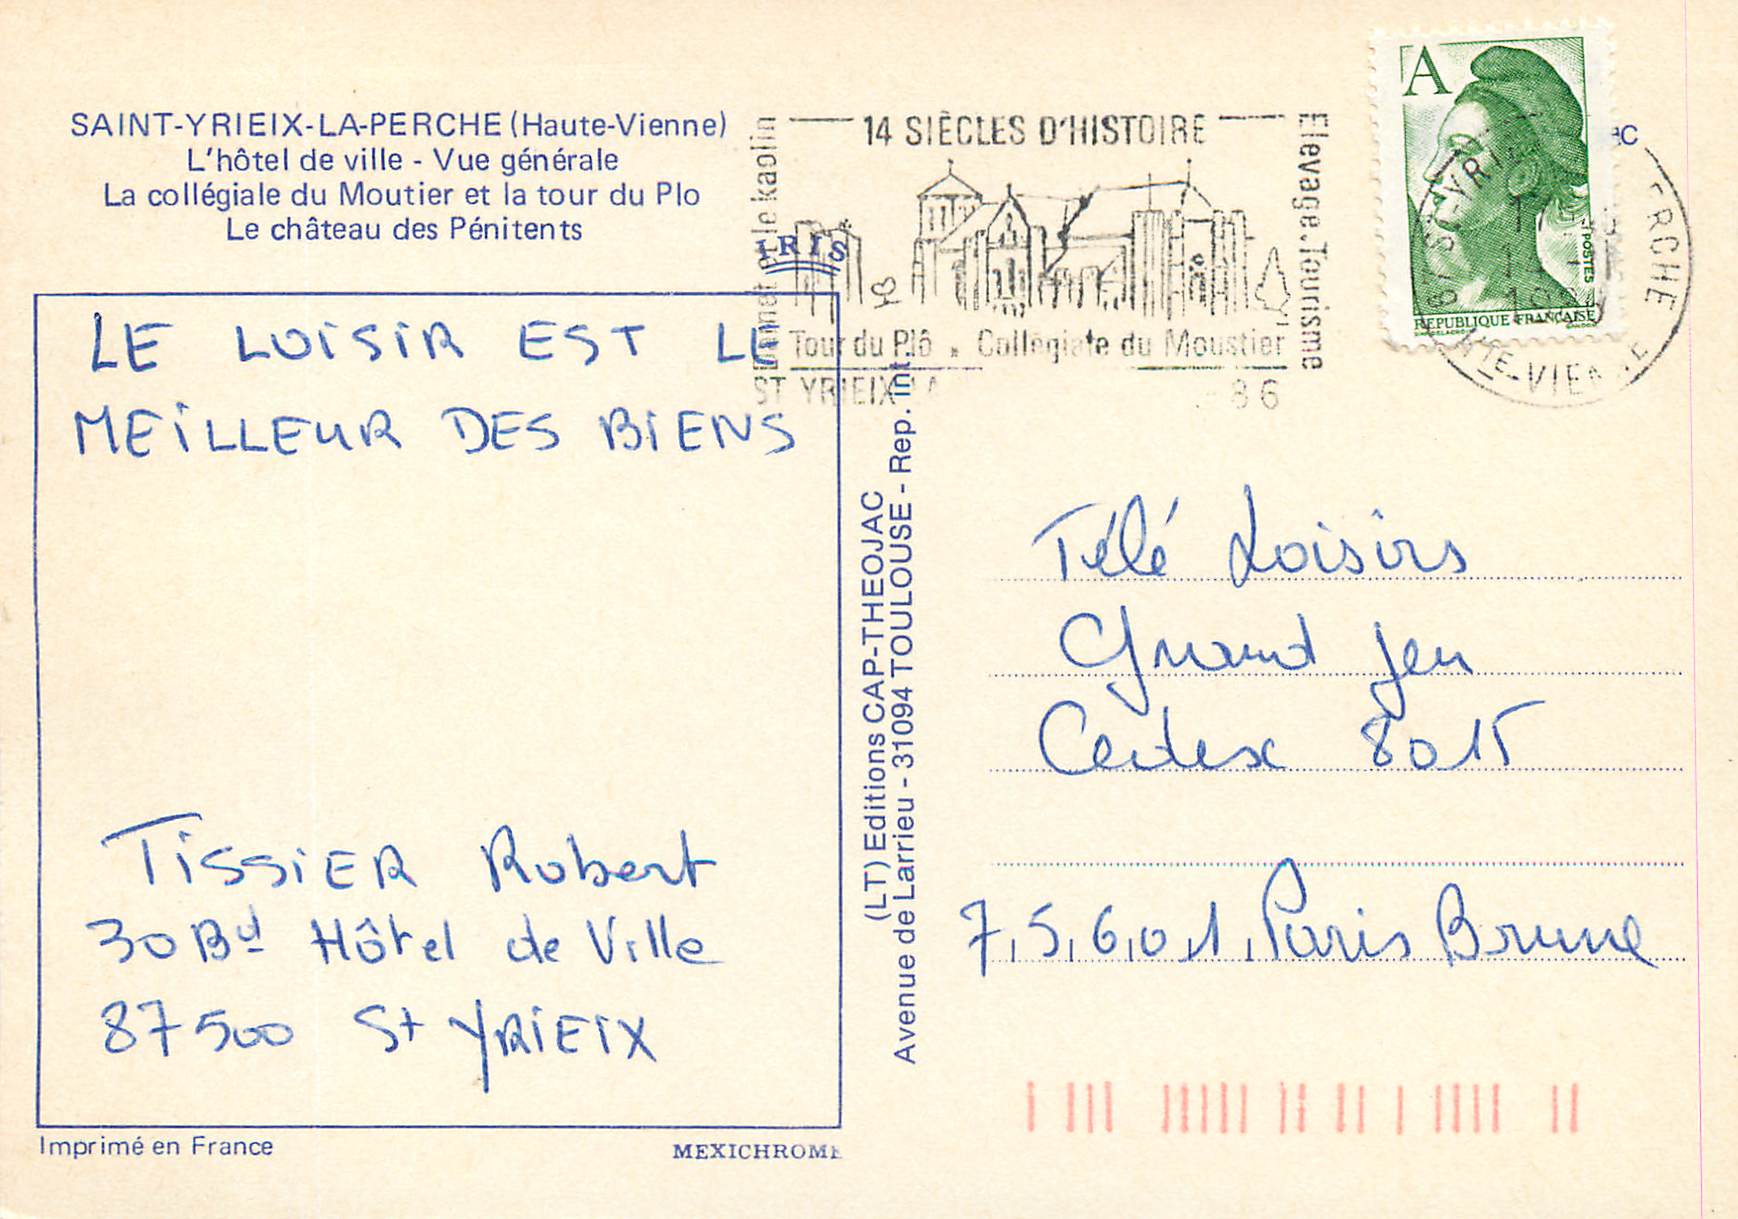 SAINT-YRIEIX-LA-PERCHE (Haute-Vienne)
L'hôtel de ville - Vue générale
La collégiale du Moutier et la tour du Plo
Le château des Pénitents
IRIS
14 SIÈCLES D'HISTOIRE
et le kaolin
Elevage. Tourisme
Tour du Plô . Collégiate du Moustier
ST YRIEIX LA
86
A
POSTES
REPUBLIQUE FRANÇAISE
ST YRIEIX
PERCHE
HTE-VIENNE
LE LOISIR EST LE
MEILLEUR DES BIENS
TISSIER Robert
30 Bd Hôtel de Ville
87500 St YRIEIX
(LT) Editions CAP-THEOJAC
Avenue de Larrieu - 31094 TOULOUSE - Rep. int.
Télé Loisirs
Grand Jeu
Cedex 8015
75601 Paris Brune
Imprimé en France
MEXICHROME